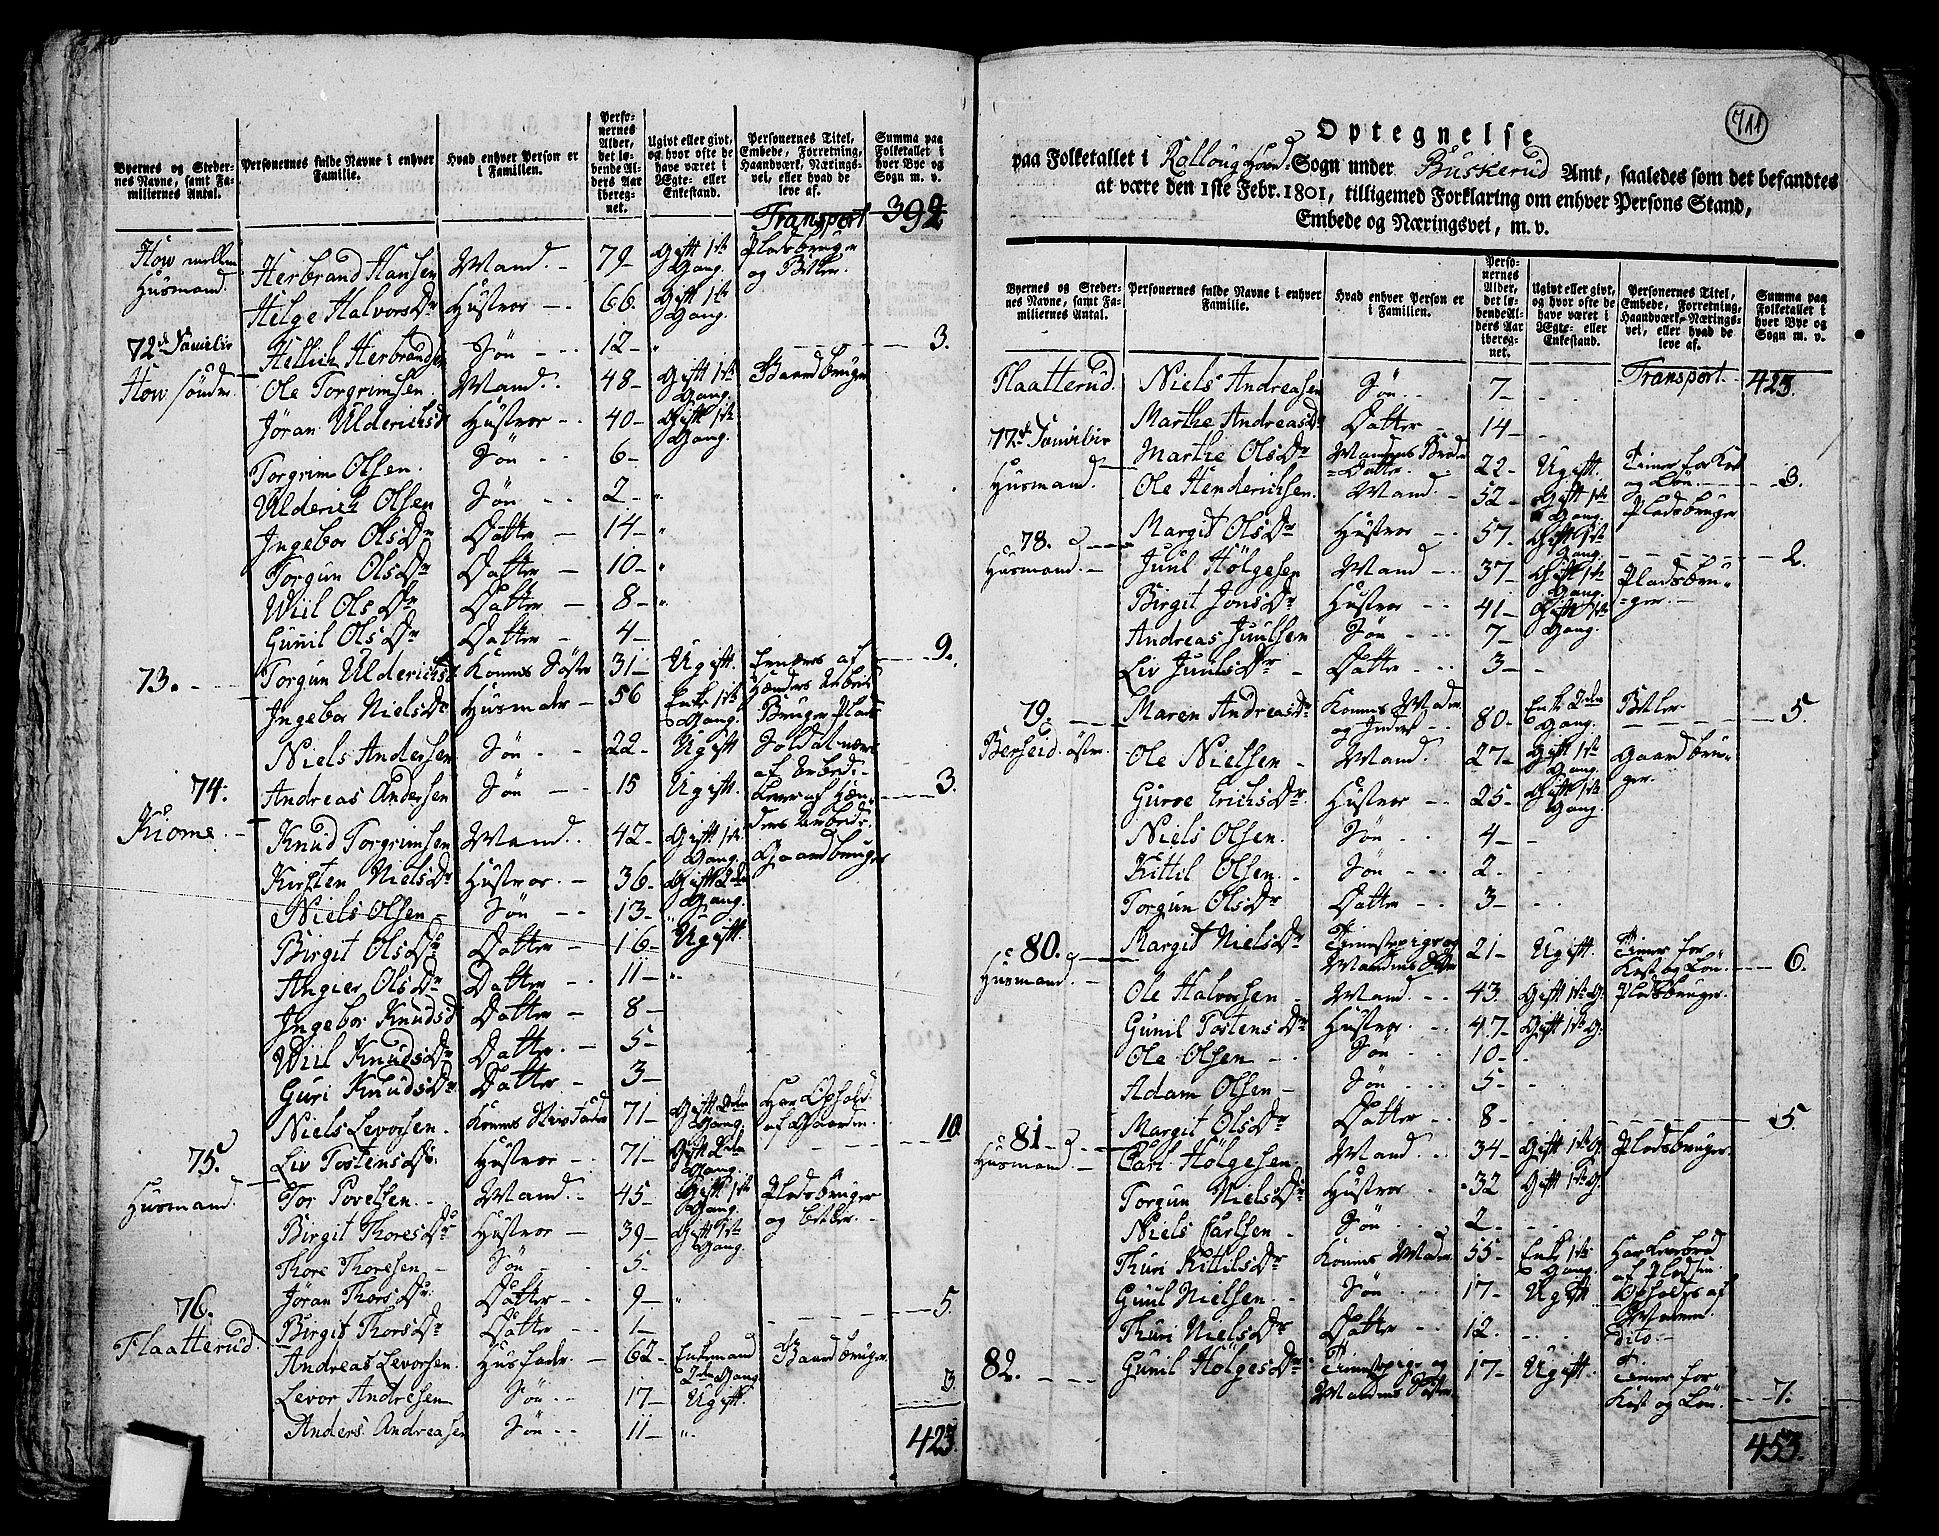 Byernes og Steder-
nes Navne, samt Fa-
miliernes Antal.
Personernes fulde Navne i enhver
Familie.
Hvad enhver Person er
i Familien.
Perso-
nernes
Alder,
det lø-
bende Al-
ders Aar
ibereg-
net.
Ugivt eller givt,
og hvor ofte de
have været i
Ægte- eller
Enkestand.
Personernes Titel,
Embede, Forretning,
Haandværk, Nærings-
vei, eller hvad de
leve af.
Summa paa
Folketallet i
hver Bye og
Sogn m. v.
Transport 392
How mellem Herbrand Hansen Mand. - 79- Gift 1ste Gang. Pladsbruger og Betler.
Husmand. Helge Halvorsdr Hustroe - 66. Gift 1ste Gang.
72d Familie Hellich Herbrandsen Søn - - 12- " 3.
How søndre Ole Torgrimsen Mand. 48- Gift 1ste Gang. Gaardbruger
Jøran Ulderichsd Hustroe - 40- Gift 1ste Gang.
Torgrim Olsen. Søn - - 6-
Ulderich Olsen Søn - - 2- "
Ingebor Olsdr Datter - 14- "
Torgun Olsdr Datter - 10- "
Wiil Olsdr Datter - 8- "
Gunil Olsdr Datter - 4-
Torgun Ulderichsd Konens Søster 31- Ugift. Ernæres af Hænders Arbeid 9.
73. Ingebor Nielsdr Husmoder - 56 Enke 1ste Gang. Bruger Plads
Niels Andersen Søn - - 22- Ugift Soldat næres af Arbeid.
74. Andreas Andersen Søn - - 15 Ugift. Lever af Hænders Arbeide. 3.
Kiome. - Knud Torgrimsen Mand. 42- Gift 1ste Gang. Gaardbruger
Kirsten Nielsdr Hustroe. - 36- Gift 2den Gang.
Niels Olsen - Søn - - 13- "
Birgit Olsdr Datter - 16- Ugift.
Angier Olsdr Datter - 11- "
Ingebor Knudsd Datter - 8-
Wiil Knudsdr Datter. - 5-
Guri Knudsdr Datter - 3-
Niels Levorsen. Konens Stiv Fader 71- Gift 2den Gang. Har Ophold af Gaarden 10.
75. Liv Tostensdr. Hustroe - 71- Gift 2den Gang.
Husmand. Tor Povelsen - Mand. - 45- Gift 1ste Gang. Pladsbruger og Betler. -
Birgit Thoresdr Hustroe - 39- Gift 1ste Gang.
Thore Thoresen - Søn - 5-
Jøran Thorsdr. Datter - 9- "
76. Birgit Thorsdr Datter - 1- 5.
Flaatterud Andreas Levorsen. Husfader - 62- Enkemand 2den Gang Gaardbruger.
Levor Andresen Søn - 17- Ugift.
Anders Andreasen Søn - 11- " 3.
423.
711
Optegnelse
paa Folketallet i Rolloug Hoved Sogn under Buskerud Amt, saaledes som det befandtes
at være den 1ste Febr. 1801, tilligemed Forklaring om enhver Persons Stand,
Embede og Næringsvei, m. v.
Byernes og Steder-
nes Navne, samt Fa-
miliernes Antal.
Personernes fulde Navne i enhver
Familie.
Hvad enhver Person er
i Familien.
Perso-
nernes
Alder,
det lø-
bende Al-
ders Aar
ibereg-
net.
Ugivt eller givt,
og hvor ofte de
have været i
Ægte- eller
Enkestand.
Personernes Titel,
Embede, Forretning,
Haandværk, Nærings-
vei, eller hvad de
leve af.
Summa paa
Folketallet i
hver Bye og
Sogn m. v.
Transport. 423.
Flaatterud. Niels Andreasen Søn - 7-
Marthe Andreasdr Datter - 14-
77de Familie Marthe Olsdr Mandens Broder Datter. 22- Ugift. Tiener for Kost og Løn. 3.
Husmand. Ole Henderichsen. Mand. - 52- Gift 1ste Gang Pladsbruger
Margit Olsdr Hustroe 57- Gift 1ste Gang.
78. 2.
Husmand. Juul Hølgesen Mand - 37- Gift 1ste Gang. Pladsbruger. -
Birgit Jonsdr Hustroe - - 41- Gift 1ste Gang.
Andreas Juulsen Søn - - 7-
Liv Juulsdr - Datter - - 3-
79. Maren Andreasdr Konens Moder og Inderst - 80- Enke 2den Gang. Betler - 5.
Berseid østre. Ole Nielsen - Mand. 27- Gift 1ste Gang Gaardbruger.
Guroe Erichsdr Hustroe - - 25- Gift 1ste Gang.
Niels Olsen. Søn - - 4-
Kittil Olsen. Søn - - 2-
Torgun Olsdr Datter - - 3-
80. Margit Nielsdr Tienestepige og Mandens Søster 21- Ugift. Tiener for Kost og Løn 6.
Husmand. Ole Halvorsen - Mand. - 43. Gift 1ste G. Pladsbruger.
Gunil Tostensdr Hustroe. - 47- Gift 1ste G.
Ole Olsen - - Søn - - 10-
Adam Olsen - Søn - - 5-
Margit Olsdr Datter - - 8- 5.
81
Husmand. Carl Hølgesen Mand. - 34- Gift 1ste G. Pladsbruger.
Torgun Nielsdr Hustroe - - 32 Gift 1ste G.
Niels Carlsen. Søn - - 2-
Thuri Kittilsdr Konens Moder. 55- Enke 1ste Gang. Har Levebrød af Pladsen
Guul Nielsen. Søn - - 17- Ugift Opholdes af Manden
Thuri Nielsdr Datter - 12. Dito. -
82. Gunil Hølgesdr Tienestepige og Mandens Søster 17- Ugift. Tiener for Kost og Løn 7.
453.